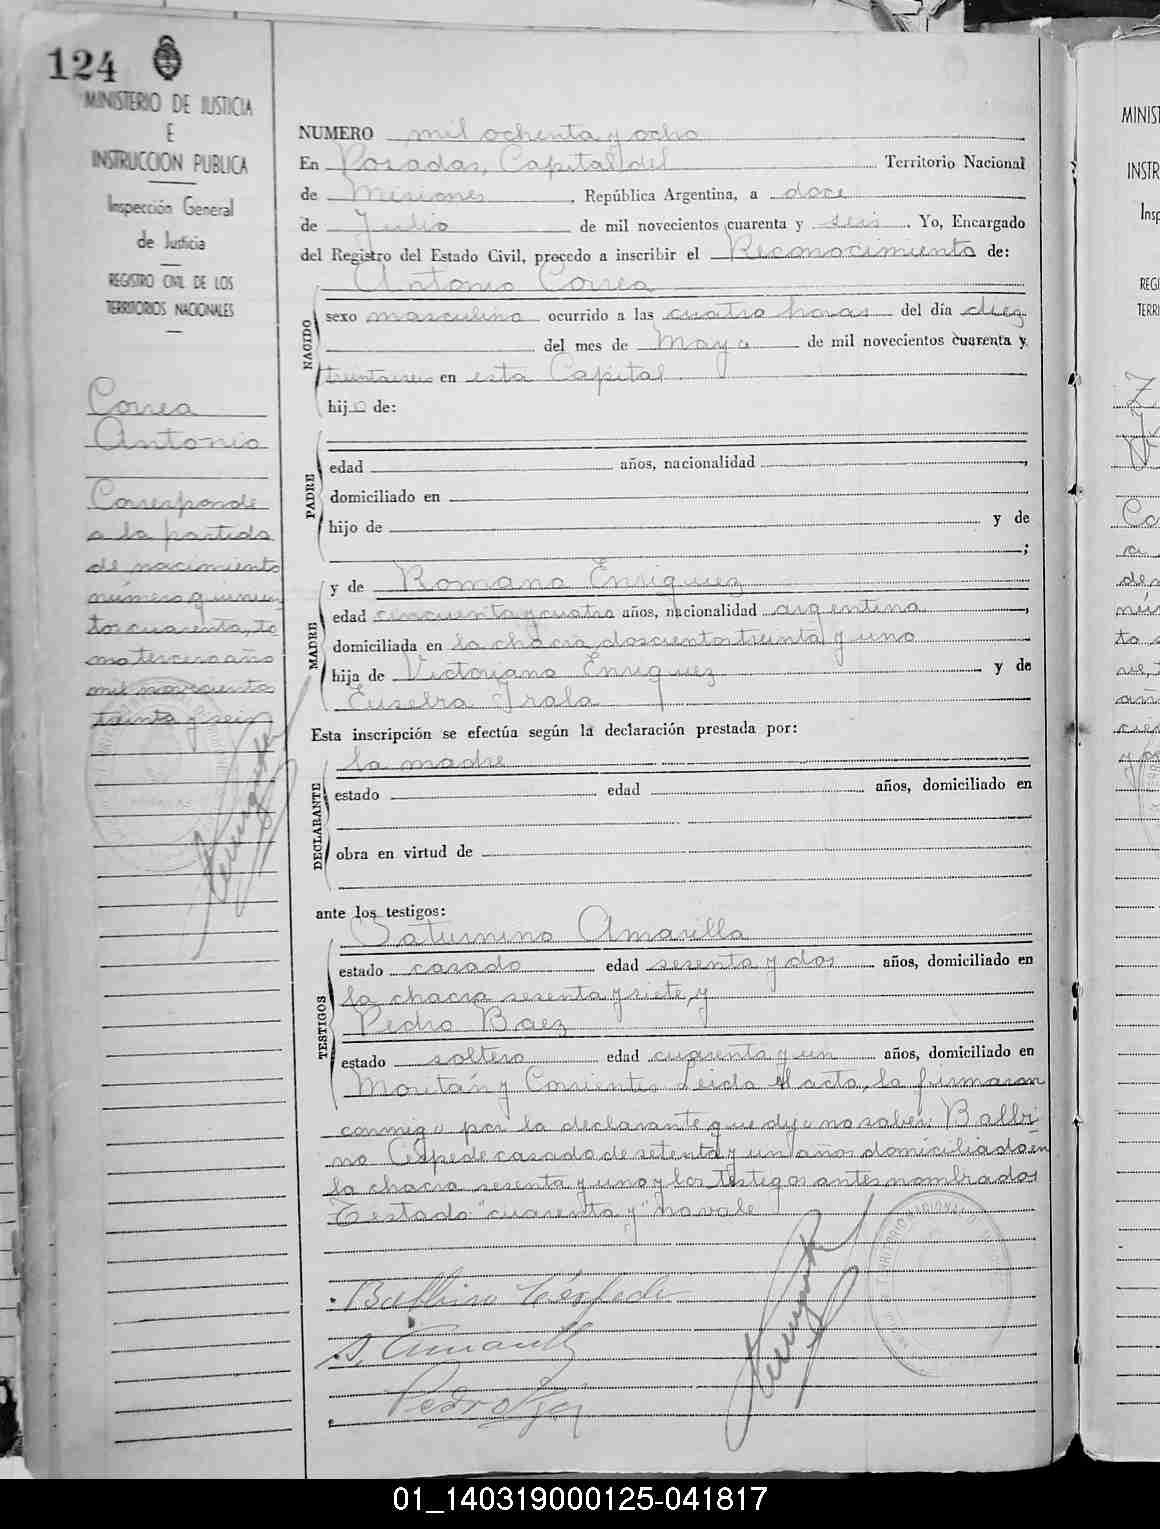 124
MINISTERIO DE JUSTICIA
E
INSTRUCCION PUBLICA
Inspección General
de Justicia
REGISTRO CIVIL DE LOS
TERRITORIOS NACIONALES
Correa
Antonio
Corresponde
a la partida
de nacimiento
número quinien
tos cuarenta, to
mo tercero año
mil novecientos
treinta y seis
NUMERO mil ochenta y ocho
En Posadas, Capital del Territorio Nacional
de Misiones, República Argentina, a doce
de Julio de mil novecientos cuarenta y seis. Yo, Encargado
del Registro del Estado Civil, procedo a inscribir el Reconocimiento de:
Antonio Correa
NACIDO
sexo masculino ocurrido a las cuatro horas del día diez
del mes de Mayo de mil novecientos cuarenta y
treinta y seis en esta Capital
hijo de:
PADRE
edad años, nacionalidad ,
domiciliado en
hijo de y de
;
MADRE
y de Romana Enriquez
edad cincuenta y cuatro años, nacionalidad argentina,
domiciliada en la chacra doscientos treinta y uno
hija de Victoriano Enriquez y de
Eusebia Irala
Esta inscripción se efectúa según la declaración prestada por:
DECLARANTE
la madre
estado edad años, domiciliado en
obra en virtud de
ante los testigos:
TESTIGOS
Saturnino Amarilla
estado casado edad sesenta y dos años, domiciliado en
la chacra sesenta y siete, y
Pedro Baez
estado soltero edad cuarenta y un años, domiciliado en
Moután y Corrientes Leida el acta, la firmaron
conmigo por la declarante que dijo no saber: Balbi
no Céspede casado de setenta y un años domiciliado en
la chacra sesenta y uno y los testigos antes nombrados
Testado "cuarenta y" no vale
Balbino Céspede
S. Amarilla
Pedro
MINIST
INSTR
Insp
REGI
TERRI
01_140319000125-041817